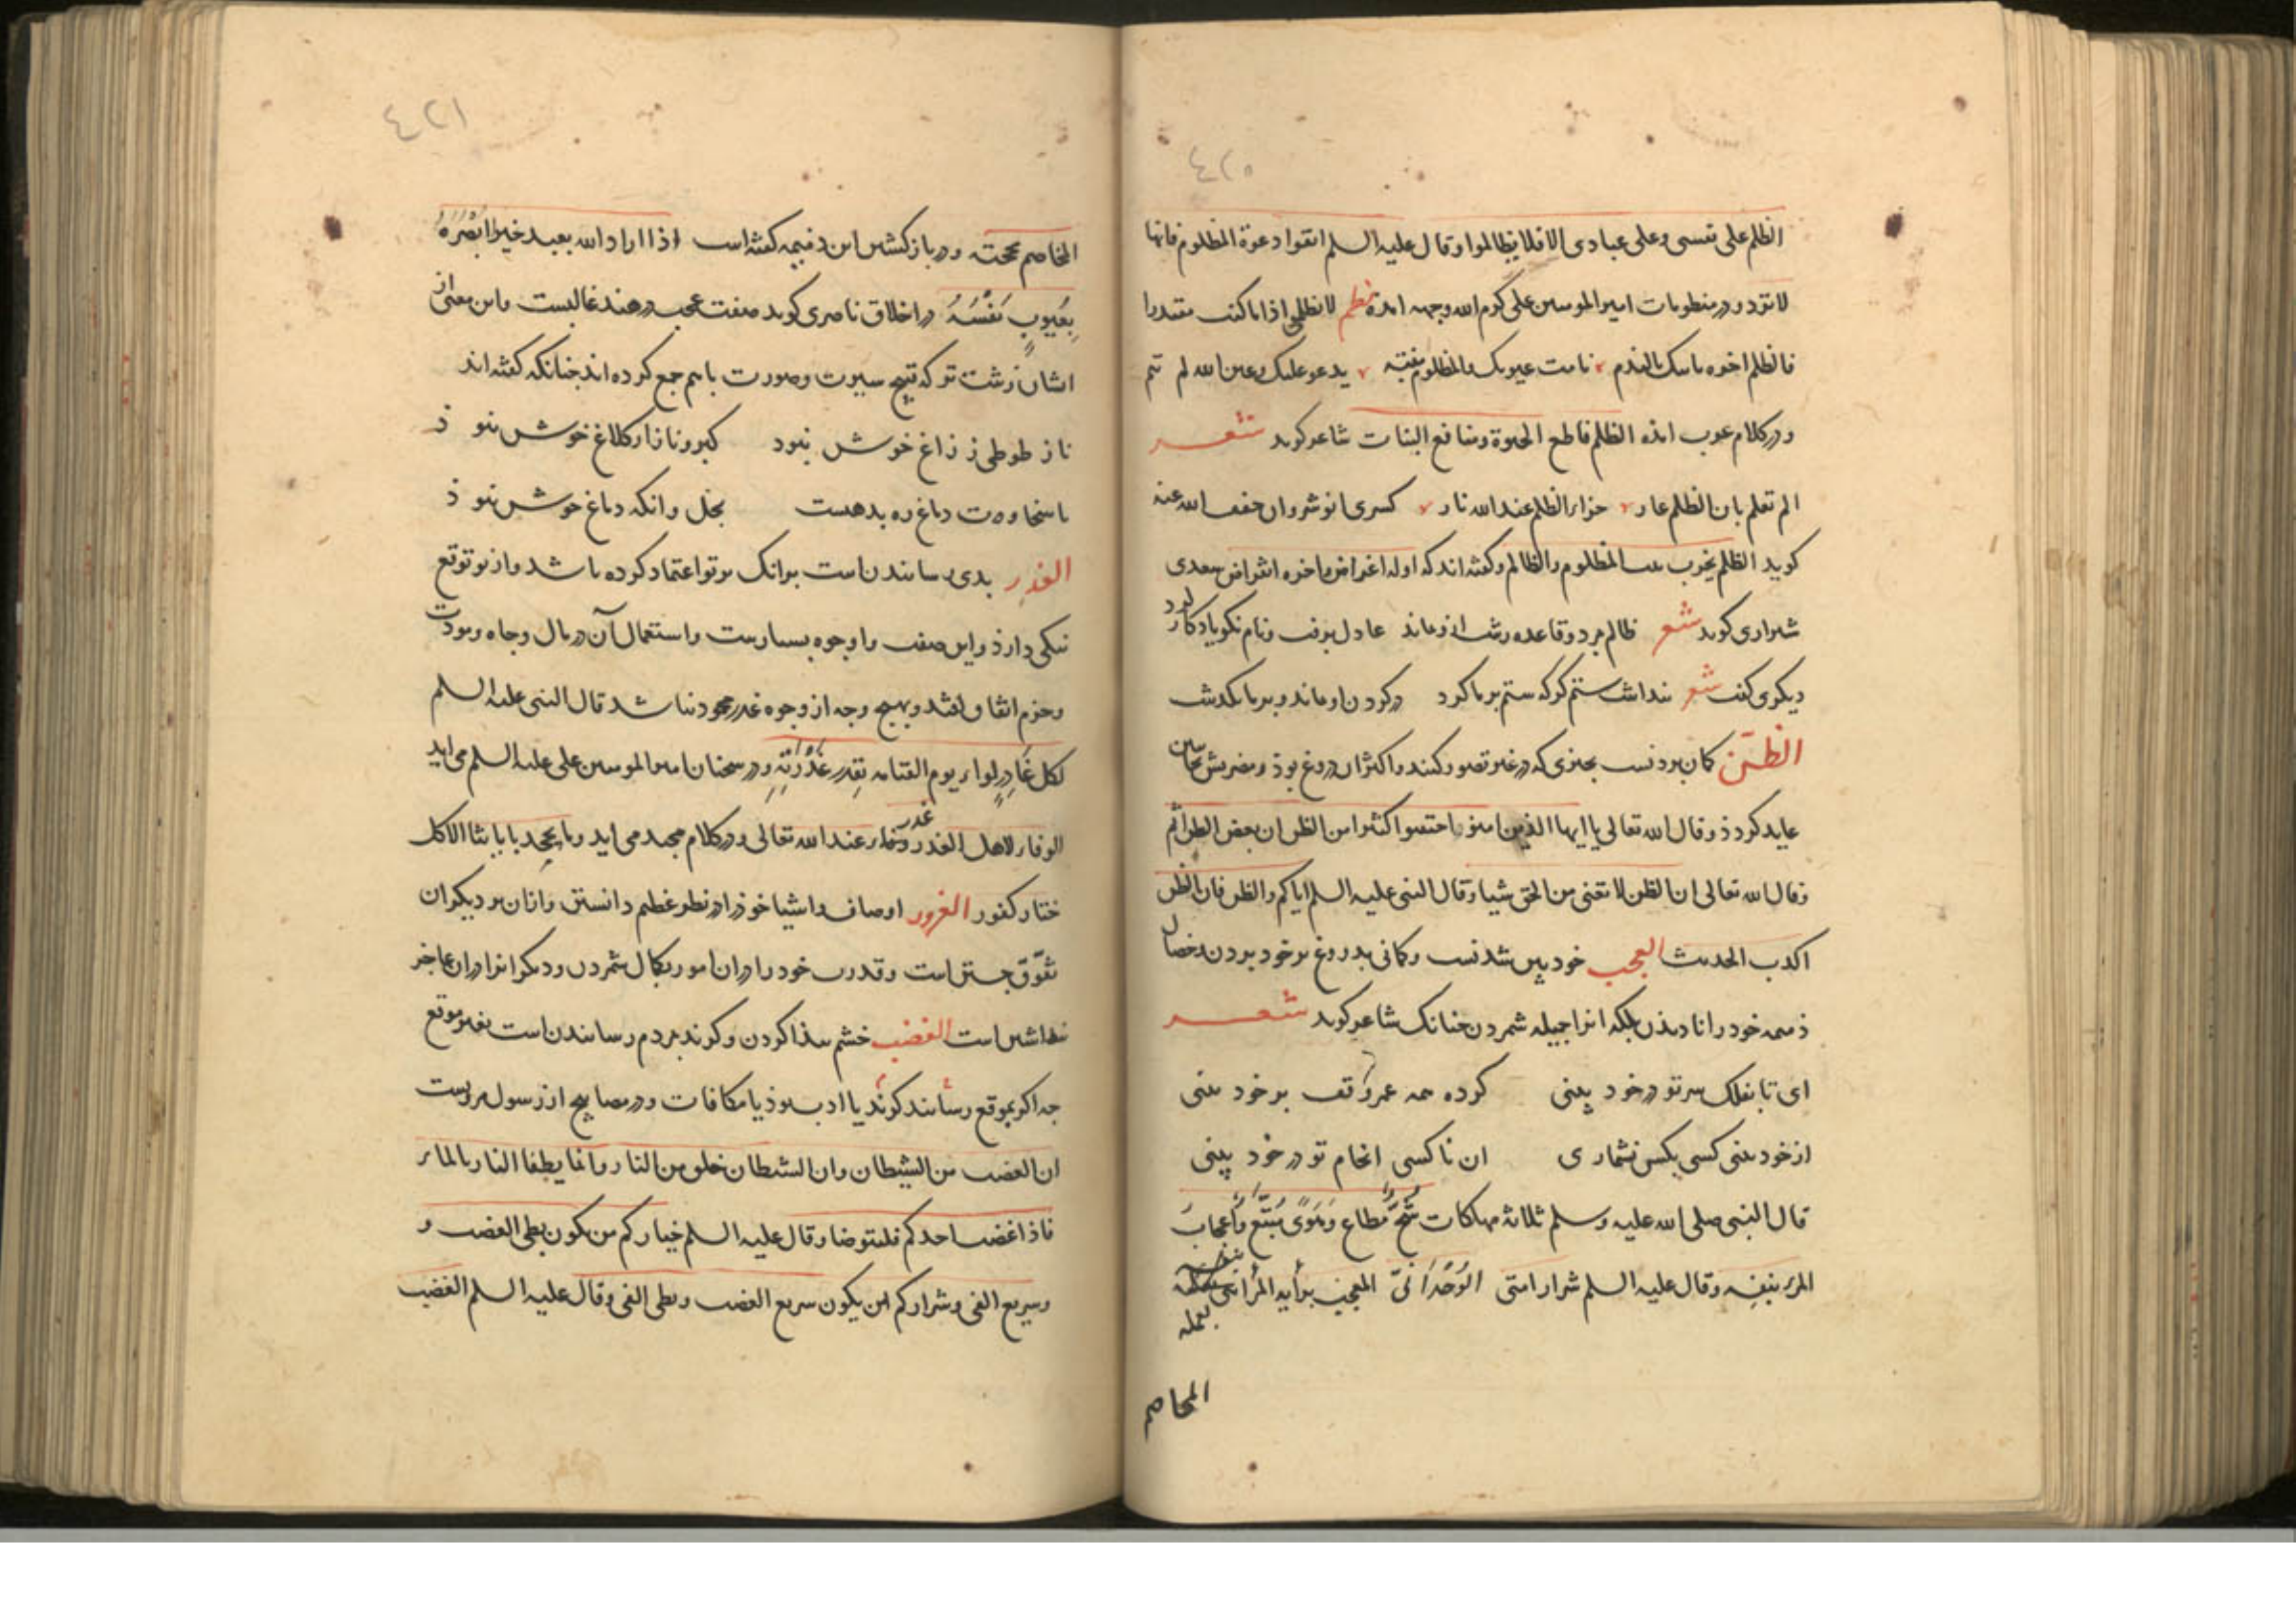 ٤٢٠
الظلم علی نفسی وعلی عبادی الا فلا یظالموا وقال علیه السلم اتقوا دعوة المظلوم فانها
لا ترد ودر منظومات امیر المومنین علی کرم الله وجهه امده نظم لا تظلمن اذا ما کنت مقتدرا
فالظلم اخره یاتیک بالندم نامت عیونک والمظلوم منتبه یدعو علیک وعین الله لم تنم
ودر کلام عرب امده الظلم قاطع الحیوة ومانع النبات شاعر کوید شعر
الم تعلم بان الظلم عار جزاء الظلم عند الله نار کسری انوشروان خفف الله عنه
کوید الظلم یخرب المظلوم والظالم وکفته اند که اوله اغراض واخره انقراض سعدی
شیرازی کوید شعر ظالم برد وقاعده زشت ازو ماند عادل برفت ونام نکو یادکار کرد
دیکری کفت شعر پنداشت ستمکر که ستم بر ما کرد در کردن او ماند وبر ما بکذشت
الظن کمان بردنست بچیزی که در غیر تصور کنند واکثر ان دروغ بوذ ومضرتش بجانبین
عاید کردذ وقال الله تعالی یا ایها الذین امنوا اجتنبوا کثیرا من الظن ان بعض الظن اثم
وقال الله تعالی ان الظن لا تغنی من الحق شیا وقال النبی علیه السلم ایاکم والظن فان الظن
اکذب الحدیث العجب خود بین شدنست وکمانی بدروغ بر خود بردن وخصال
ذمیمه خود را نادیدن بلکه انرا جمیله شمردن چنانک شاعر کوید شعر
ای تا بفلک سر تو در خود بینی کرده همه عمر وقف بر خود بینی
از خود بینی کسی بکس نشماری ان ناکسی انجام تو در خود بینی
قال النبی صلی الله علیه وسلم ثلاثة مهلکات شُحٌّ مُطاع وَهَوًی مُتَّبَع وَاِعجابُ
المرء بنفسه وقال علیه السلم شرار امتی الوُحدانیّ المعجب برأیه المرائی بعمله
المخاصم
٤٢١
المخاصم بحجته ودر باز کشتن این دمیمه کفته است اذا اراد الله بعبد خیرا ابصره
بِعُیوبِ نَفْسِهِ در اخلاق ناصری کوید صفت عجب در هند غالبست واین معنی از
ایشان زشت تر که قبح سیرت وصورت باهم جمع کرده اند چنانکه کفته اند
ناز طوطی ز زاغ خوش نبود کبر وناز از کلاغ خوش نبوذ
با سخاوت دماغ ره بد هست بخل وانکه دماغ خوش نبوذ
الغدر بدی رسانیدن است بر انک بر تو اعتماد کرده باشد واز تو توقع
نیکی دارذ واین صفت را وجوه بسیارست واستعمال آن در مال وجاه ومودت
وحرم اتفاق افتد وبهیچ وجه از وجوه غدر محمود نباشد قال النبی علیه السلم
لکل غَادِرٍ لواء یوم القیامه بقدر غَدْرَتِهِ ودر سخنان امیر المومنین علی علیه السلم می اید
الوفاء لاهل الغدر غدر عند الله تعالی ودر کلام مجید می اید وما یجحد بایاتنا الا کل
ختار کفور الغرور اوصاف واشیا خوذ را در نظر عظیم دانستن وازان بر دیکران
تفوّق جستن است وقدرت خود را در ان امور بکمال شمردن ودیکرانرا دران عاجز
پنداشتن است الغضب خشم پیذا کردن وکزند بمردم رسانیدن است بغیر موقع
چه اکر بموقع رسانند کویند یا ادب بوذ یا مکافات ودر مصابیح از رسول مرویست
ان الغضب من الشیطان وان الشیطان خلق من النار وانما یطفا النار بالماء
فاذا غضب احدکم فلیتوضا وقال علیه السلم خیارکم من یکون بطی الغضب و
وسریع الفی وشرارکم من یکون سریع الغضب وبطی الفی وقال علیه السلم الغضب